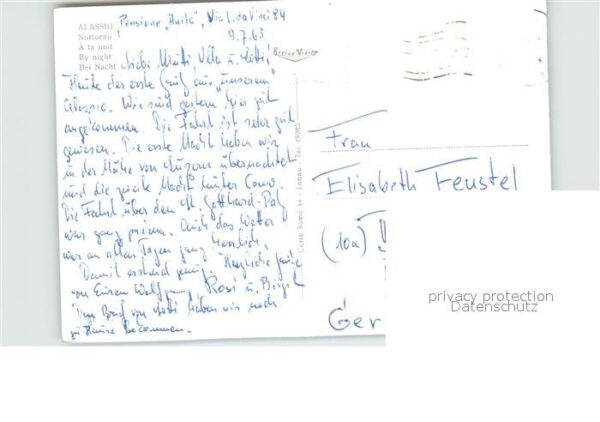 ALASSIO
Notturno
À la nuit
By night
Bei Nacht
Pensione „Anita", Via L. da Vinci 84
9.7.63
Liebe Mutti, Vati u. Lotti!
Heute der erste Gruß aus „unserem"
Alassio. Wir sind gestern hier gut
angekommen. Die Fahrt ist sehr gut
gewesen. Die erste Nacht haben wir
in der Nähe von Luzern übernachtet
und die zweite Nacht hinter Como.
Die Fahrt über den St. Gotthard-Paß
war ganz prima. Auch das Wetter
war an allen Tagen ganz herrlich.
Damit erstmal genug. Herzliche Grüße
von Euren Wolfgang, Rosi u. Birgit
Den Brief von Lotti haben wir noch
zu Hause bekommen.
Corso Roma 44 - Tel. 40385
Frau
Elisabeth Feustel
(10a)
Ger
privacy protection
Datenschutz